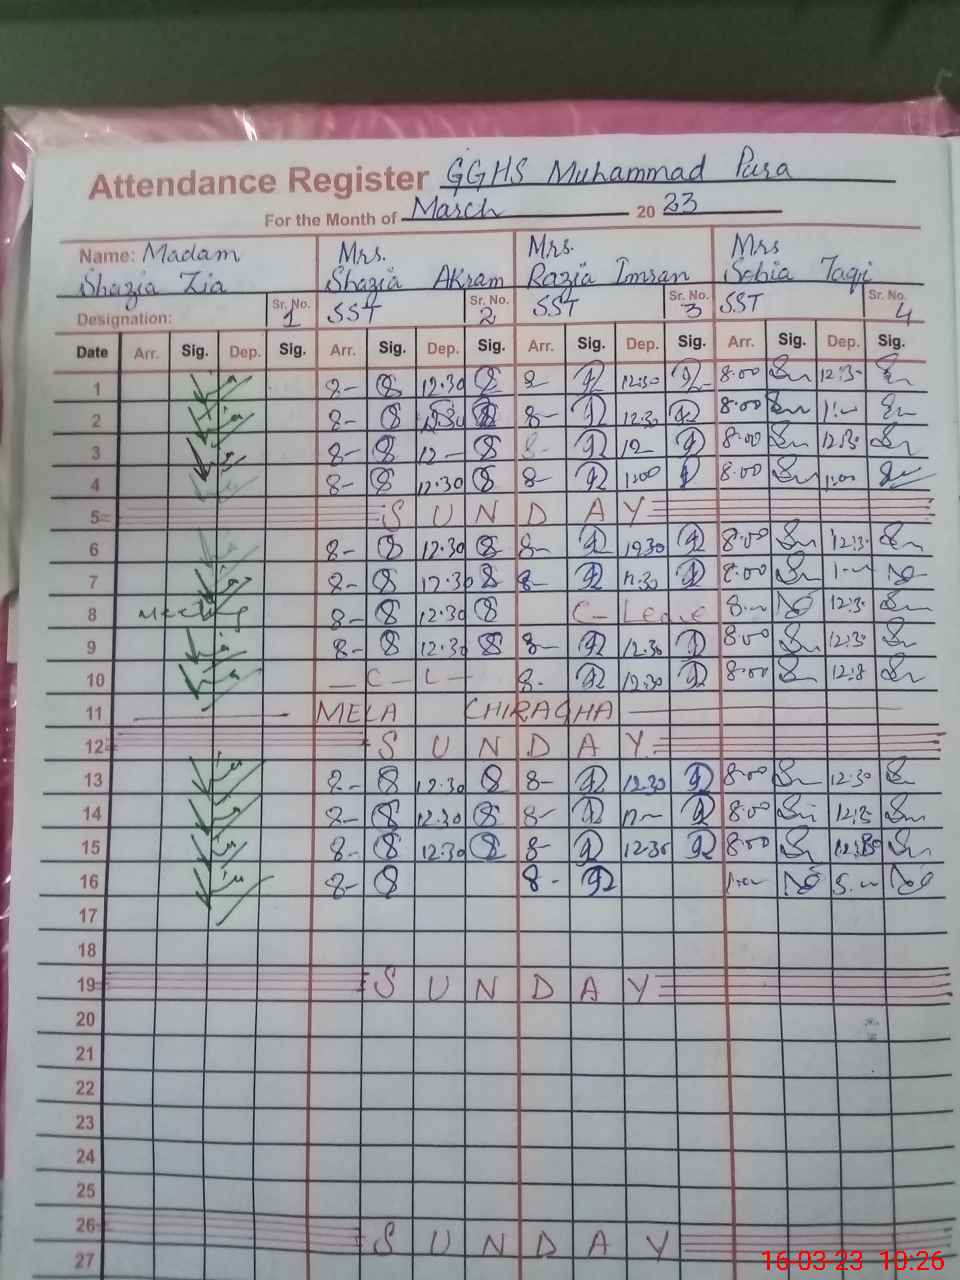 Attendance Register GGHS Muhammad Pura
For the Month of March 20 23
Name: Madam Mrs. Mrs. Mrs
Shazia Zia Shazia Akram Razia Imran Sobia Taqi
Designation: Sr. No. 1 SST Sr. No. 2 SST Sr. No. 3 SST Sr. No. 4
Date Arr. Sig. Dep. Sig. Arr. Sig. Dep. Sig. Arr. Sig. Dep. Sig. Arr. Sig. Dep. Sig.
1 8- 12.30 8- 12:30 8:00 12:3-
2 8- 8- 12.30 8:00 1:-
3 8- 12- 8- 12 8:00 12:30
4 8- 12.30 8- 1:00 8:00 1:00
5 SUNDAY
6 8- 12.30 8- 12.30 8:00 12:3-
7 8- 12.30 8- 8:00 1--
8 Meeting 8- 12.30 C-Leave 8:- 12:3-
9 8- 12.30 8- 12.30 8:00 12:30
10 - C - L - 8- 12.30 8:00
11 MELA CHIRAGHA
12 SUNDAY
13 8- 12.30 8- 12.30 8:00 12:30
14 8- 12.30 8- 8:00
15 8- 12.30 8- 12.30 8:00
16 8- 8-
17
18
19 SUNDAY
20
21
22
23
24
25
26 SUNDAY
27
16-03-23 10:26